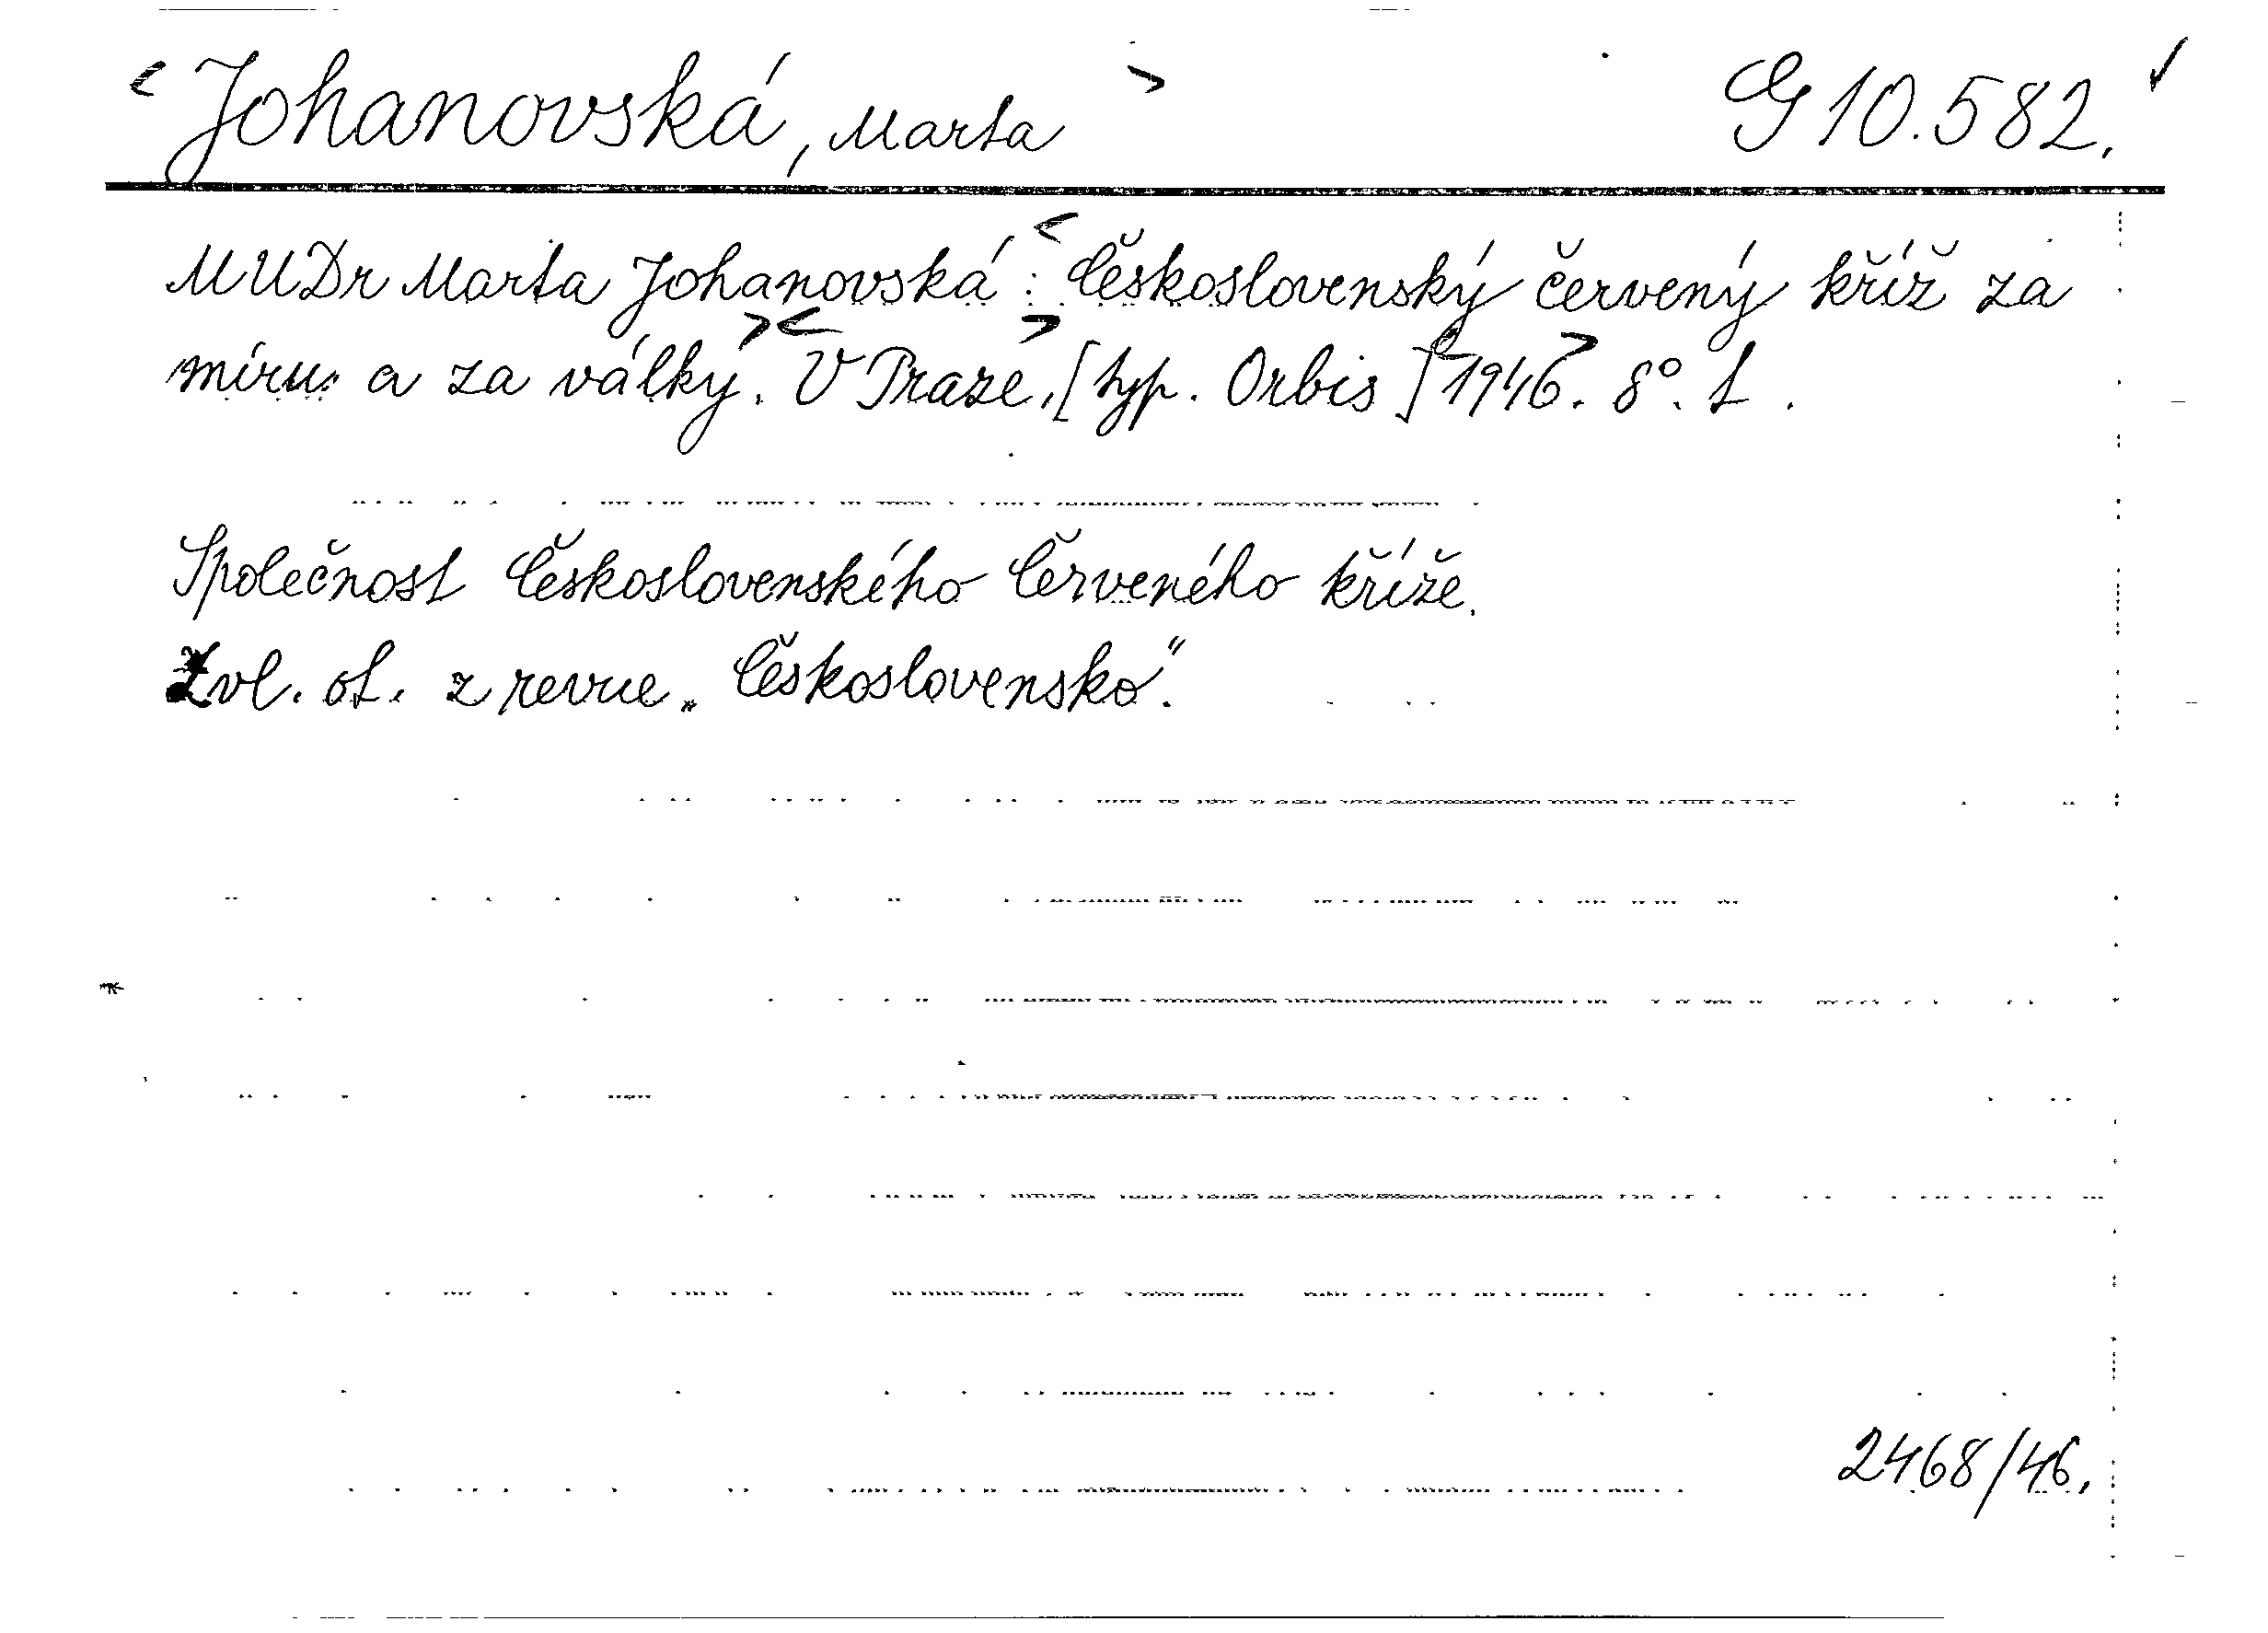 Johanovská, Marta G 10.582.
MUDr Marta Johanovská: Československý červený kříž za
míru a za války. V Praze, [typ. Orbis] 1946. 8°. L.
Společnost Československého Červeného kříže.
Zvl. ot. z revue „Československo".
2468/46.